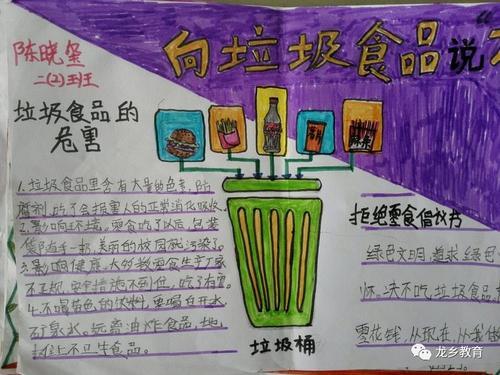 向垃圾食品说"
陈晓玺
二(2)班
垃圾食品的
危害
1.垃圾食品里含有大量的色素,防
腐剂,吃了会损害人的正常消化吸收。
2.影响环境。零食吃了以后,包装
袋随手一扔,美丽的校园就污染了。
3.影响健康。大多数零食生产厂家
不正规,安全措施不到位,吃了有害。
4.不喝着色的饮料,要喝白开水
矿泉水。远离油炸食品,地
摊上不卫生食品。
垃圾桶
拒绝零食倡议书
绿色文明,追求绿色
坏。决不吃垃圾食品
零花钱,从现在,从我做
龙乡教育